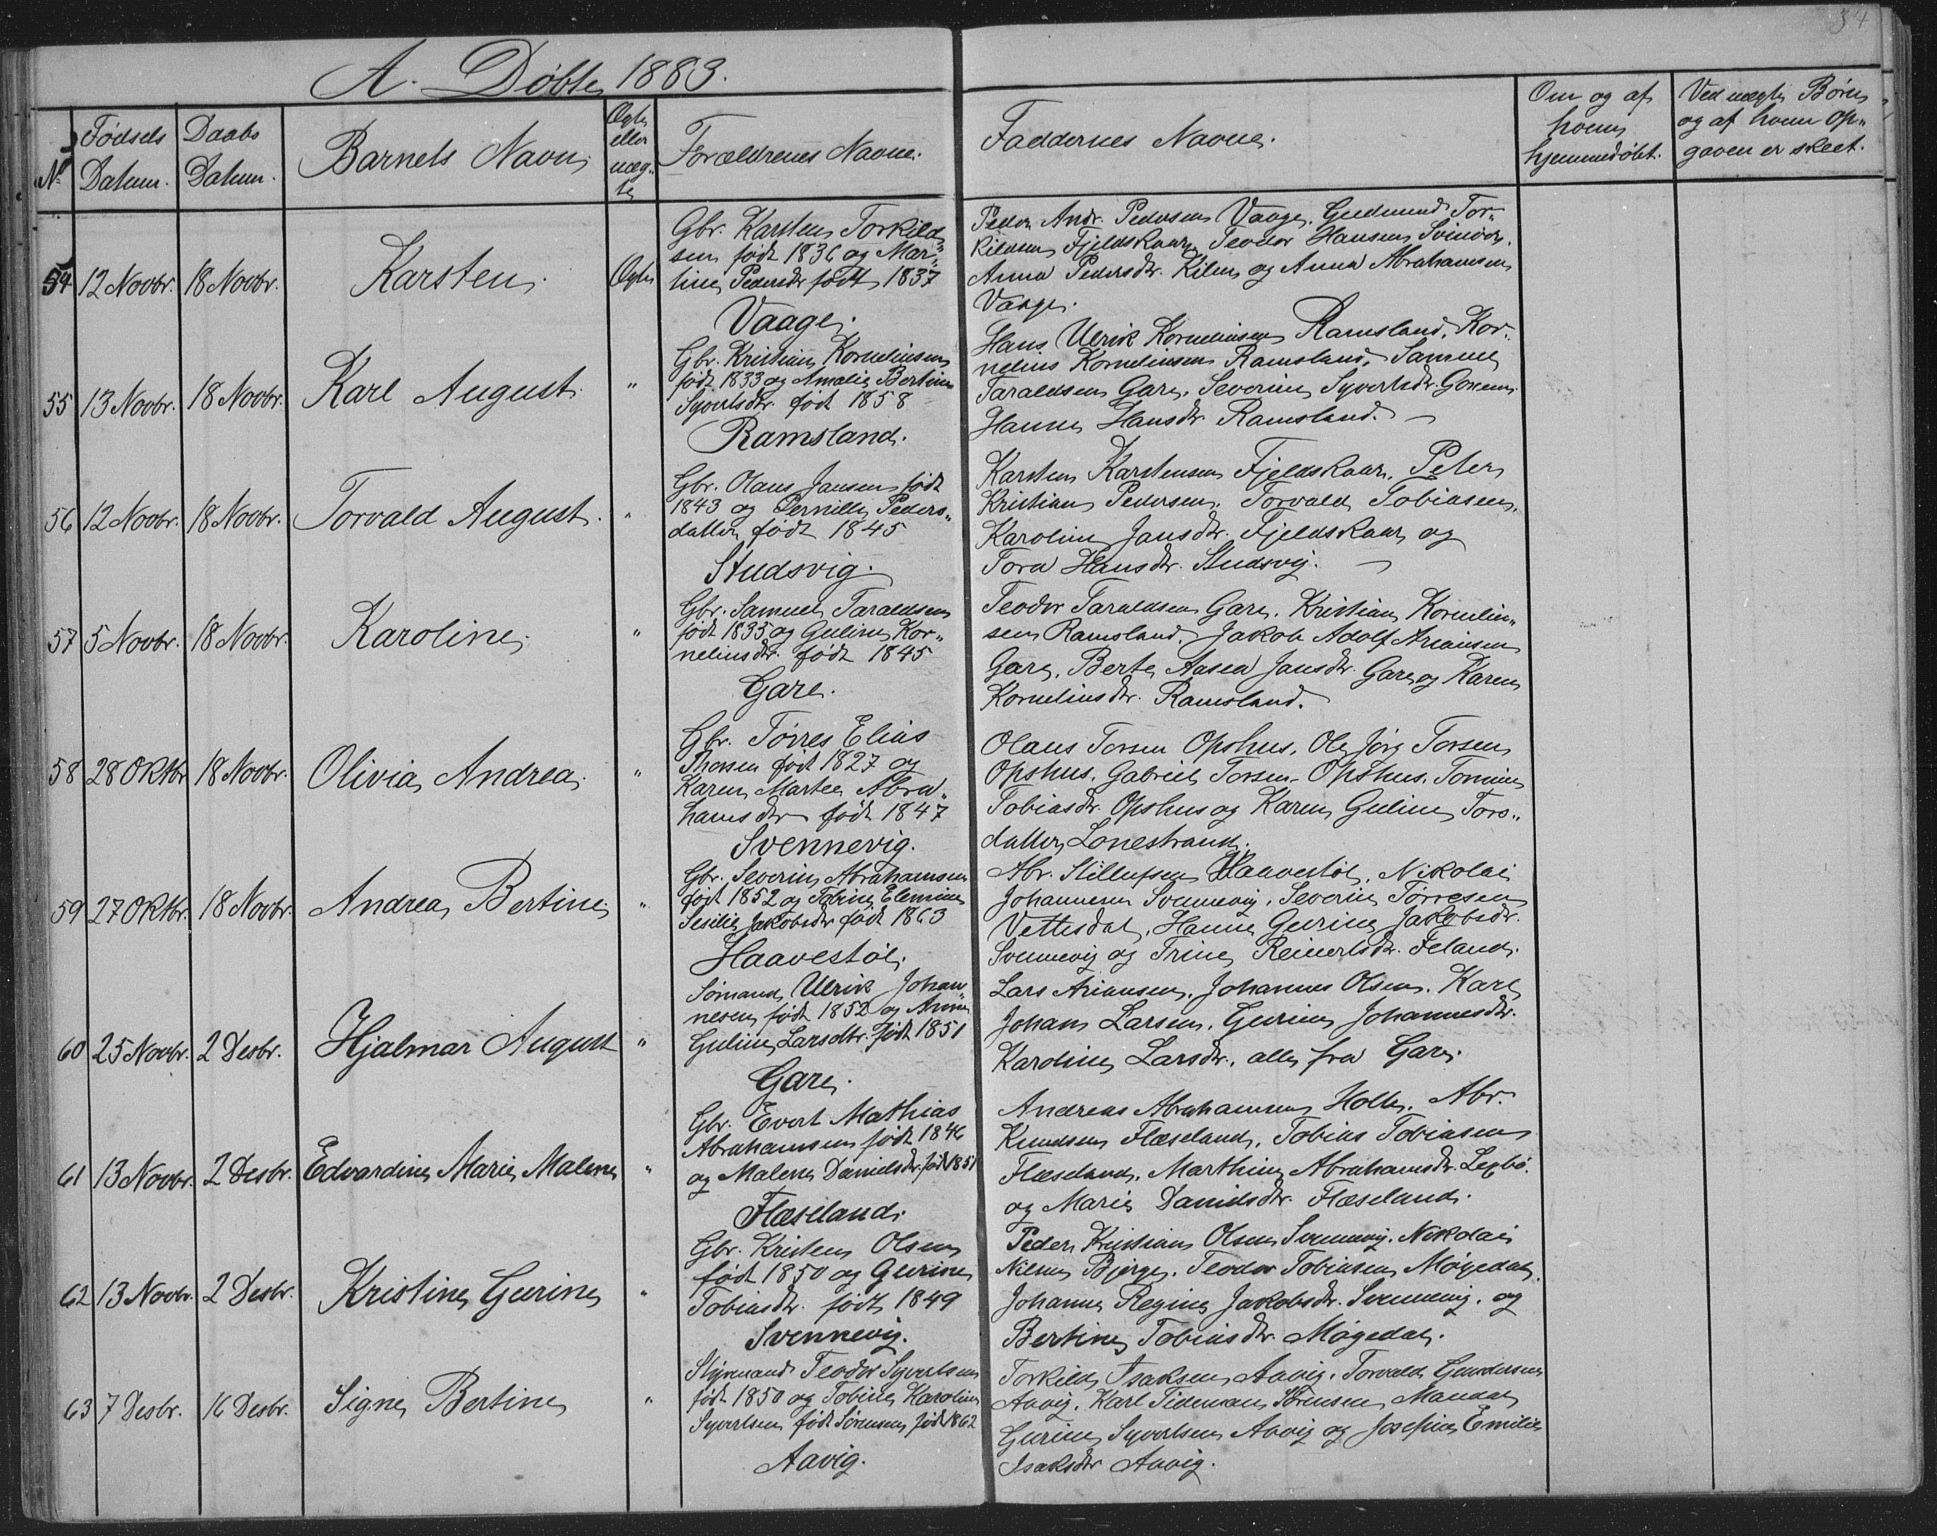 34
A. Døbte 1883.
No
Fødsels Datum.
Daabs Datum.
Barnets Navn.
Ægte eller uæg-te
Forældrenes Navne.
Faddernes Navne.
Om og af hvem hjemmedøbt.
Ved uægte Børn og af hvem Op-gaven er skeet.
54 12 Novbr. 18 Novbr. Karsten. Ægte
Gbr. Karsten Torkild-
sen født 1836 og Mar-
tine Pedersdtr født 1837
Vaage.
Peder Andr. Pedersen Vaage, Gudmund Tor-
kildsen Fjeldskaar, Teodor Hansen Svinøer,
Anna Pedersdtr. Kilen og Anna Abrahamsen
Vaage.
55 13 Novbr. 18 Novbr. Karl August. "
Gbr. Kristian Korneliusen
født 1833 og Amalie Bertine
Syvertsdtr. født 1858
Ramsland.
Hans Ulrik Korneliusen Ramsland, Kor-
nelius Korneliusen Ramsland, Samuel
Taraldsen Gare, Severine Syvertsdtr.
Hanne Hansdtr Ramsland.
56 12 Novbr. 18 Novbr. Torvald August. "
Gbr. Olaus Jansen født
1843 og Pernille Peders-
datter født 1845
Studsvig.
Karsten Karstensen Fjeldskaar, Peter
Kristian Pedersen, Torvald Tobiasen,
Karoline Jansdtr. Fjeldskaar og
Tora Hansdtr. Studsvig.
57 5 Novbr. 18 Novbr. Karoline. "
Gbr. Samuel Taraldsen
født 1835 og Guline Kor-
neliusdtr. født 1845
Gare.
Teodor Taraldsen Gare, Kristian Kornelius-
sen Ramsland, Jakob Adolf Ariansen
Gare, Berte Aasea Jansdtr. Gare og Karen
Korneliusdtr. Ramsland.
58 28 Oktbr 18 Novbr. Olivia Andrea. "
Gbr. Tørres Elias
Thorsen født 1827 og
Karen Martea Abra-
hamsdtr født 1847
Svennevig.
Olaus Torsen Opshus, Ole Jørg Torsen
Opshus, Gabriel Torsen Opshus, Tomine
Tobiasdtr. Opshus og Karen Guline Tors-
datter Lonestrand.
59 27 Oktbr. 18 Novbr. Andrea Bertine. "
Gbr. Severin Abrahamsen
født 1852 og Tobine Elemine
Sesilie Jakobsdtr født 1863
Haavestøl.
Abr. Stillufsen Haavestøl, Nikolai
Johannesen Svennevig, Severin Tørresen
Vettesdal, Hanne Gurine Jakobsdtr.
Svennevig og Trine Reinertsdtr. Feland.
60 25 Novbr. 2 Desbr. Hjalmar August "
Sømand Ulrik Johan-
nesen født 1852 og Anne
Guline Larsdtr. født 1851
Gare.
Lars Ariansen, Johannes Olsen, Karl
Johan Larsen, Gurine Johannesdtr.
Karoline Larsdtr., alle fra Gare.
61 13 Novbr. 2 Desbr. Edvardine Marie Malene "
Gbr. Evert Mathias
Abrahamsen født 1846
og Malene Danielsdtr. født 1851
Flæseland.
Andreas Abrahamsen Holle, Abr.
Knudsen Flæseland, Tobias Tobiasen
Flæseland, Marthine Abrahamsdtr.
og Marie Danielsdtr. Flæseland.
62 13 Novbr. 2 Desbr. Kristine Gurine "
Gbr. Kristen Olsen
født 1850 og Gurine
Tobiasdtr. født 1849
Svennevig.
Peder Kristian Olsen Svennevig, Nikolai
Nilsen Bjerge, Teodor Tobiasen Møgedal,
Johanne Regine Jakobsdtr. Svennevig, og
Bertine Tobiasdtr. Møgedal.
63 7 Desbr. 16 Desbr. Signe Bertine "
Styrmand Teodor Syvertsen
født 1850 og Tobile Karoline
Syvertsen født Sørensen født 1862
Aavig.
Torkild Isaksen Aavig, Torvald Gundersen
Aavig, Karl Tideman Sørensen Mandal
Gurine Syvertsen Aavig og Josefine Emilie
Isaksdtr Aavig.